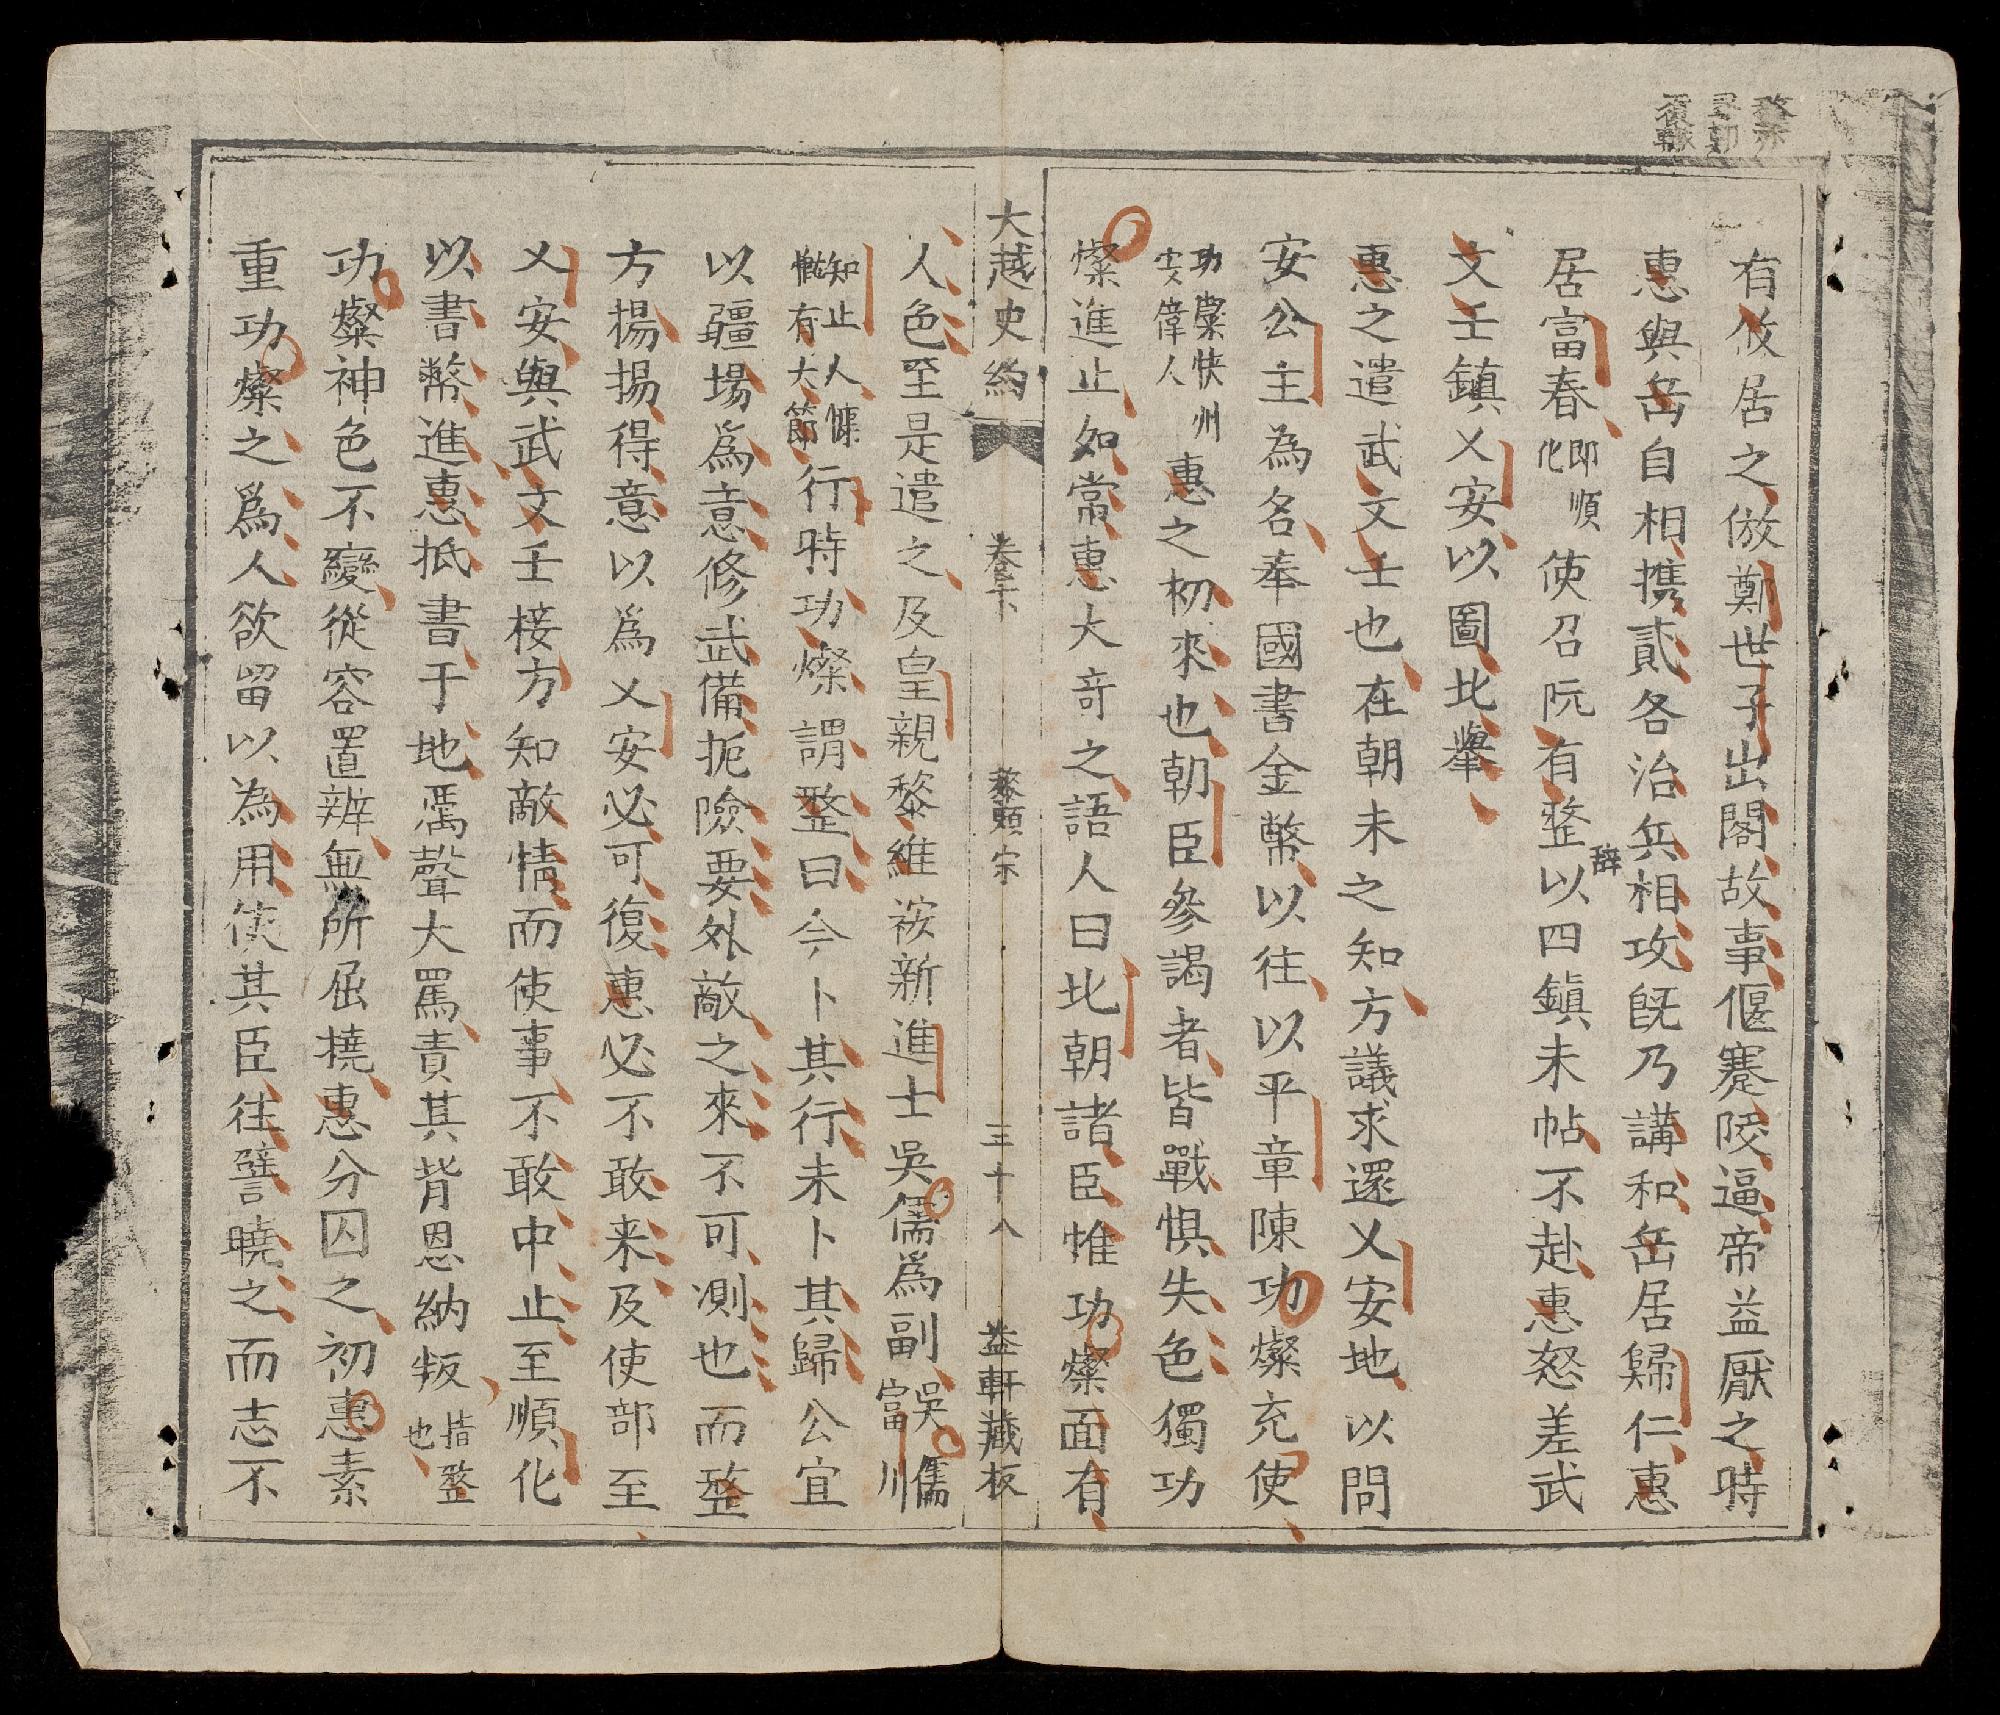 有攸居之倣鄭世子出閣故事偃蹇陵逼帝益厭之時
惠與岳自相携貳各治兵相攻旣乃講和岳居歸仁惠
居富春即順化使召阮有整以四鎮未帖不赴惠怒差武
辞
文壬鎮乂安以圖北舉
惠之遣武文壬也在朝未之知方議求還乂安地以問
安公主為名奉國書金幣以往以平章陳功燦充使
功燦快州安偉人惠之初來也朝臣參謁者皆戰惧失色獨功
燦進止如常惠大奇之語人曰北朝諸臣惟功燦面有
大越史約 卷下 黎顯宗 三十八 益軒藏板
人色至是遣之及皇親黎維袯新進士吳儒爲副吳儁富川
知止人慷慨有大節行時功燦謂整曰今卜其行未卜其歸公宜
以疆場爲意修武備扼險要外敵之來不可測也而整
方揚揚得意以爲乂安必可復惠必不敢来及使部至
乂安與武文壬接方知敵情而使事不敢中止至順化
以書幣進惠抵書于地焉聲大罵責其背恩納叛指整也
功燦神色不變從容置辨無所屈撓惠分囚之初惠素
重功燦之爲人欲留以為用使其臣往譬曉之而志不